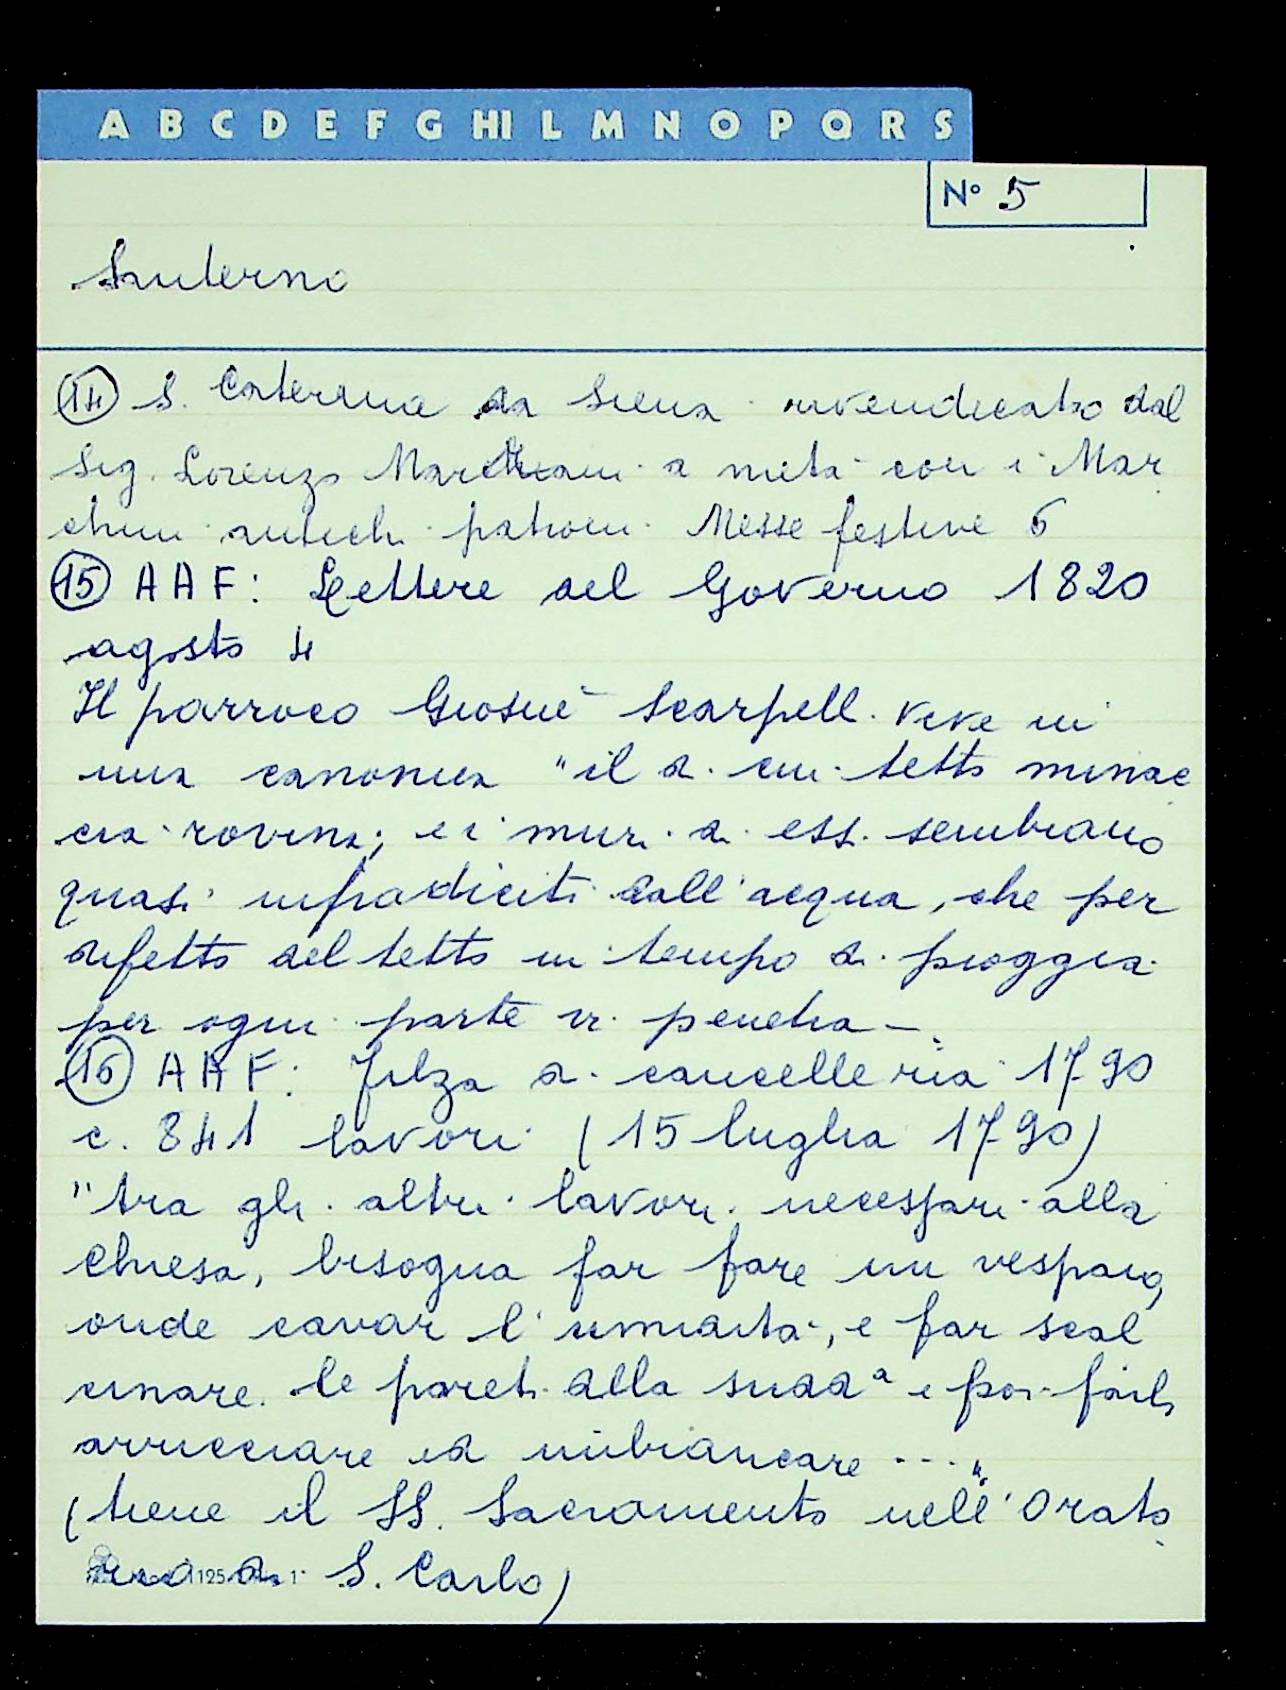 A B C D E F G HI L M N O P Q R S
N° 5
Santerno
14 S. Caterina da Siena rivendicato dal
Sig. Lorenzo a metà con i Mar
chini antichi patroni. Messe festive 6
15 AAF: Lettere del Governo 1820
agosto 4
Il parroco Giosuè Scarpelli vive in
una canonica "il di cui tetto minac
cia rovina; e i muri di essi sembrano
quasi infradiciti dall'acqua, che per
difetto del tetto in tempo di pioggia
per ogni parte vi penetra -
16 AAF: Filza di cancelleria 1790
c. 841 lavori (15 luglia 1790)
"tra gli altri lavori necessari alla
chiesa, bisogna far fare un vespaio,
onde cavar l'umidità, e far scal
cinare le pareti alla suddª e poi farli
arricciare ed imbiancare ....".
(tiene il SS. Sacramento nell'Orato
rio di S. Carlo)